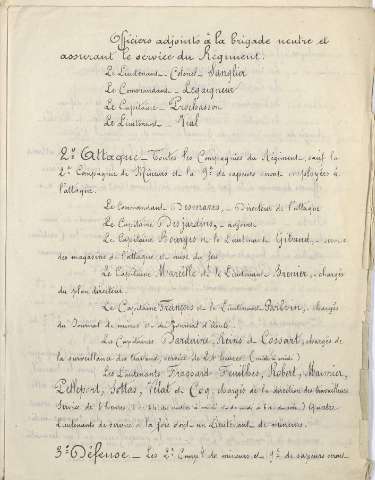 Officiers adjoints à la brigade neutre et
assurant le service du Régiment.
Le Lieutenant-Colonel Sanglier
Le Commandant - Lesaigneur
Le Capitaine - Prochasson
Le Lieutenant - Vial
2° Attaque - Toutes les Compagnies du Régiment, sauf la
2e Compagnie de Mineurs et la 9e de sapeurs seront employées à
l'attaque.
Le Commandant Desmares, - Directeur de l'attaque
Le Capitaine Desjardins, - adjoint
Le Capitaine Bourges et le Lieutenant Giraud, -
des magasins de l'attaque et mise du feu
Le Capitaine Mareille et le Lieutenant Bremer, - chargés
du plan directeur.
Le Capitaine François et le Lieutenant chargés
du Journal de mines et du Journal d'école.
Les Capitaines Dardenne, Reins et Cossart, chargés de
la surveillance des travaux, service de 24 heures (midi à midi)
Les Lieutenants Fragnard, Feuilhes, Robert, Meunier,
Pelleport, Sottas, Vidal et Coq, chargés de la direction des travailleurs
Service de 8 heures matin à midi et de midi à soir) Quatre
Lieutenants de service à la fois dont un Lieutenant de mineurs.
3° Défense - Les 2e Comp.ie de mineurs et 9e de sapeurs seront